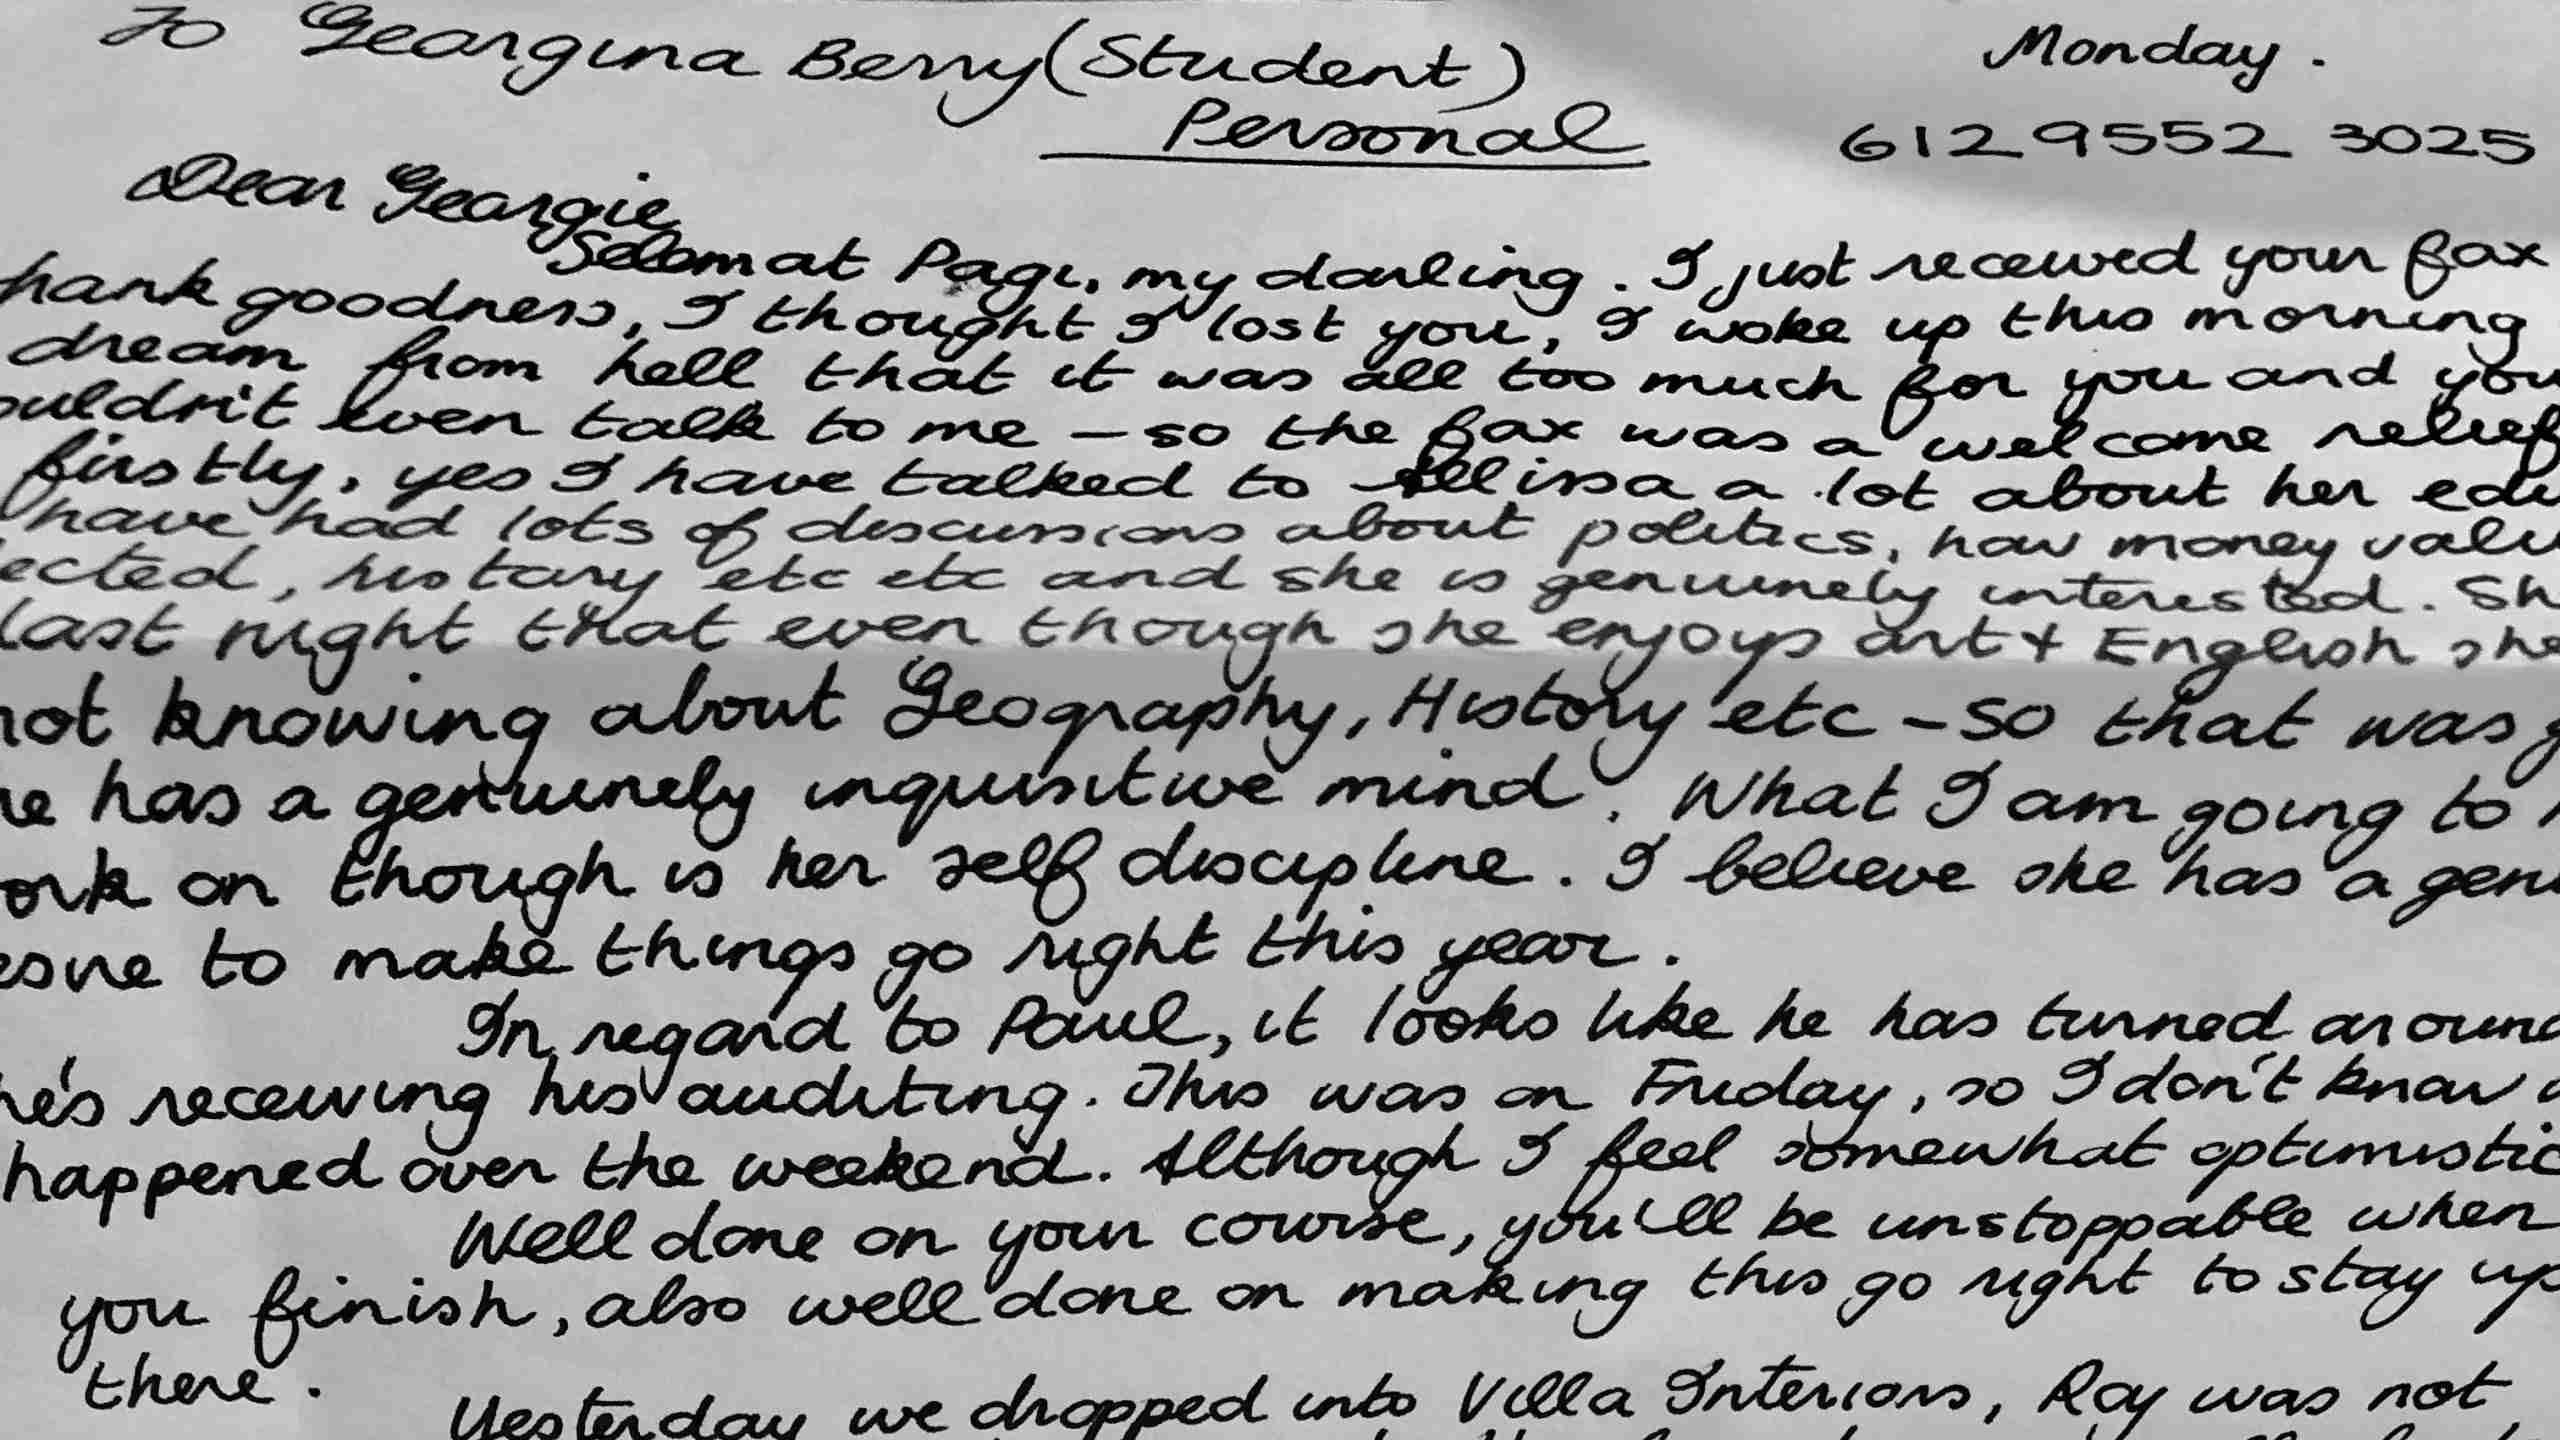 To Georgina Berry (Student)
Monday.
Personal
612 9552 3025
Dear Georgie
Selamat Pagi, my darling. I just received your fax
hank goodness, I thought I lost you, I woke up this morning
dream from hell that it was all too much for you and you
ouldn't even talk to me - so the fax was a welcome relief
firstly, yes I have talked to Alissa a lot about her edu
have had lots of discussions about politics, how money valu
ected, history etc etc and she is genuinely interested. Sh
last night that even though she enjoys art + English she
not knowing about Geography, History etc - so that was g
he has a genuinely inquisitive mind. What I am going to
ork on though is her self discipline. I believe she has a genu
esire to make things go right this year.
In regard to Paul, it looks like he has turned around
he's receiving his auditing. This was on Friday, so I don't know
happened over the weekend. Although I feel somewhat optimistic
Well done on your course, you'll be unstoppable when
you finish, also well done on making this go right to stay up
there.
Yesterday we dropped into Villa Interiors, Roy was not